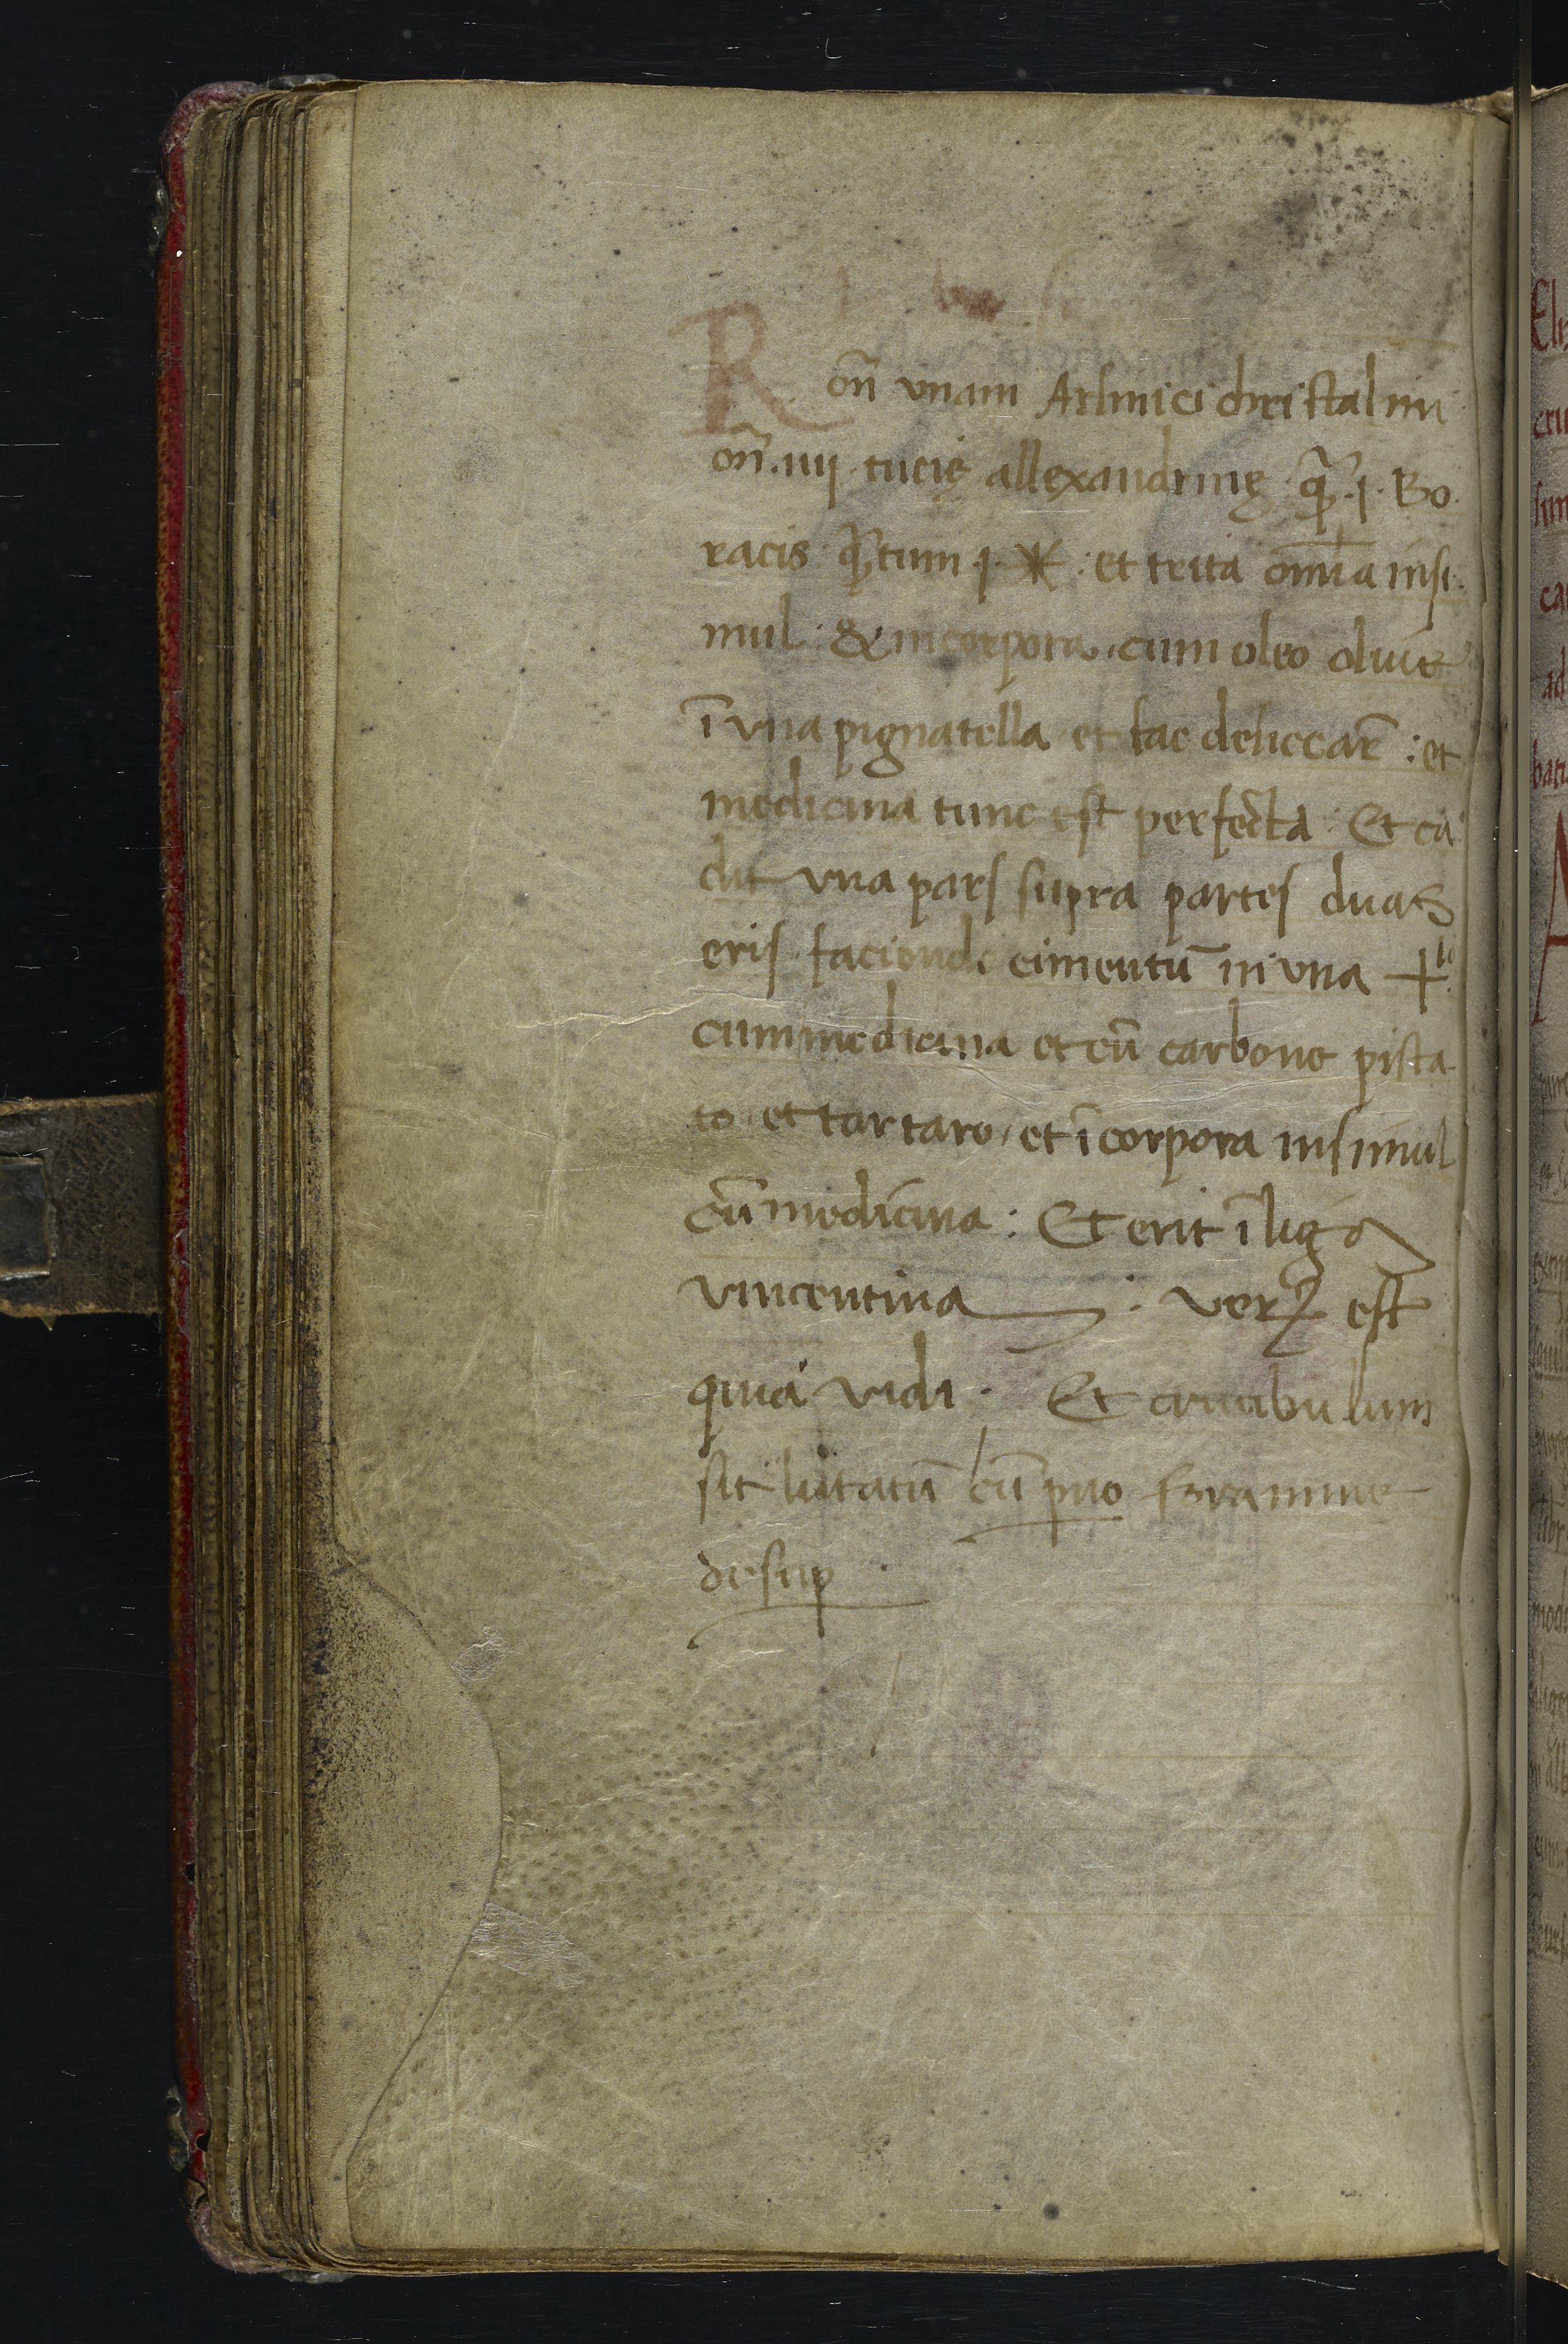 R on̄ vnam Arsinici christalini
on̄. iiij. tucię allexandrinę. qꝛ̄. j. Bo
racis qꝛtum .j. ✶ : et trita om̄ia insi
mul. & incorpora. cum oleo oliue
ī vna pignatella et fac desiccar̄ : et
medicina tunc est perfecta. Et ca
dit vna pars supra partes duas
eris. faciendo cimentū in vna +lo
cum medicina et cū carbone pista
to et tartaro, et īcorpora insimul
cū medicina : Et erit ī liga
vincentina. verꝝ est
quia vidi. Et crucibulum
sit lutatū cū ꝑuo foramine
desuꝑ